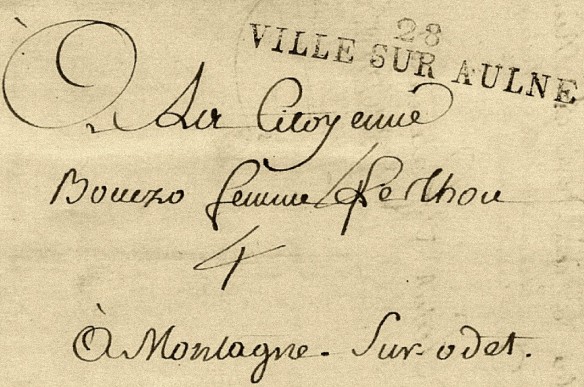 28
VILLE SUR AULNE
A La Citoyenne
Bouezo femme
4
à Montagne - Sur - odet.